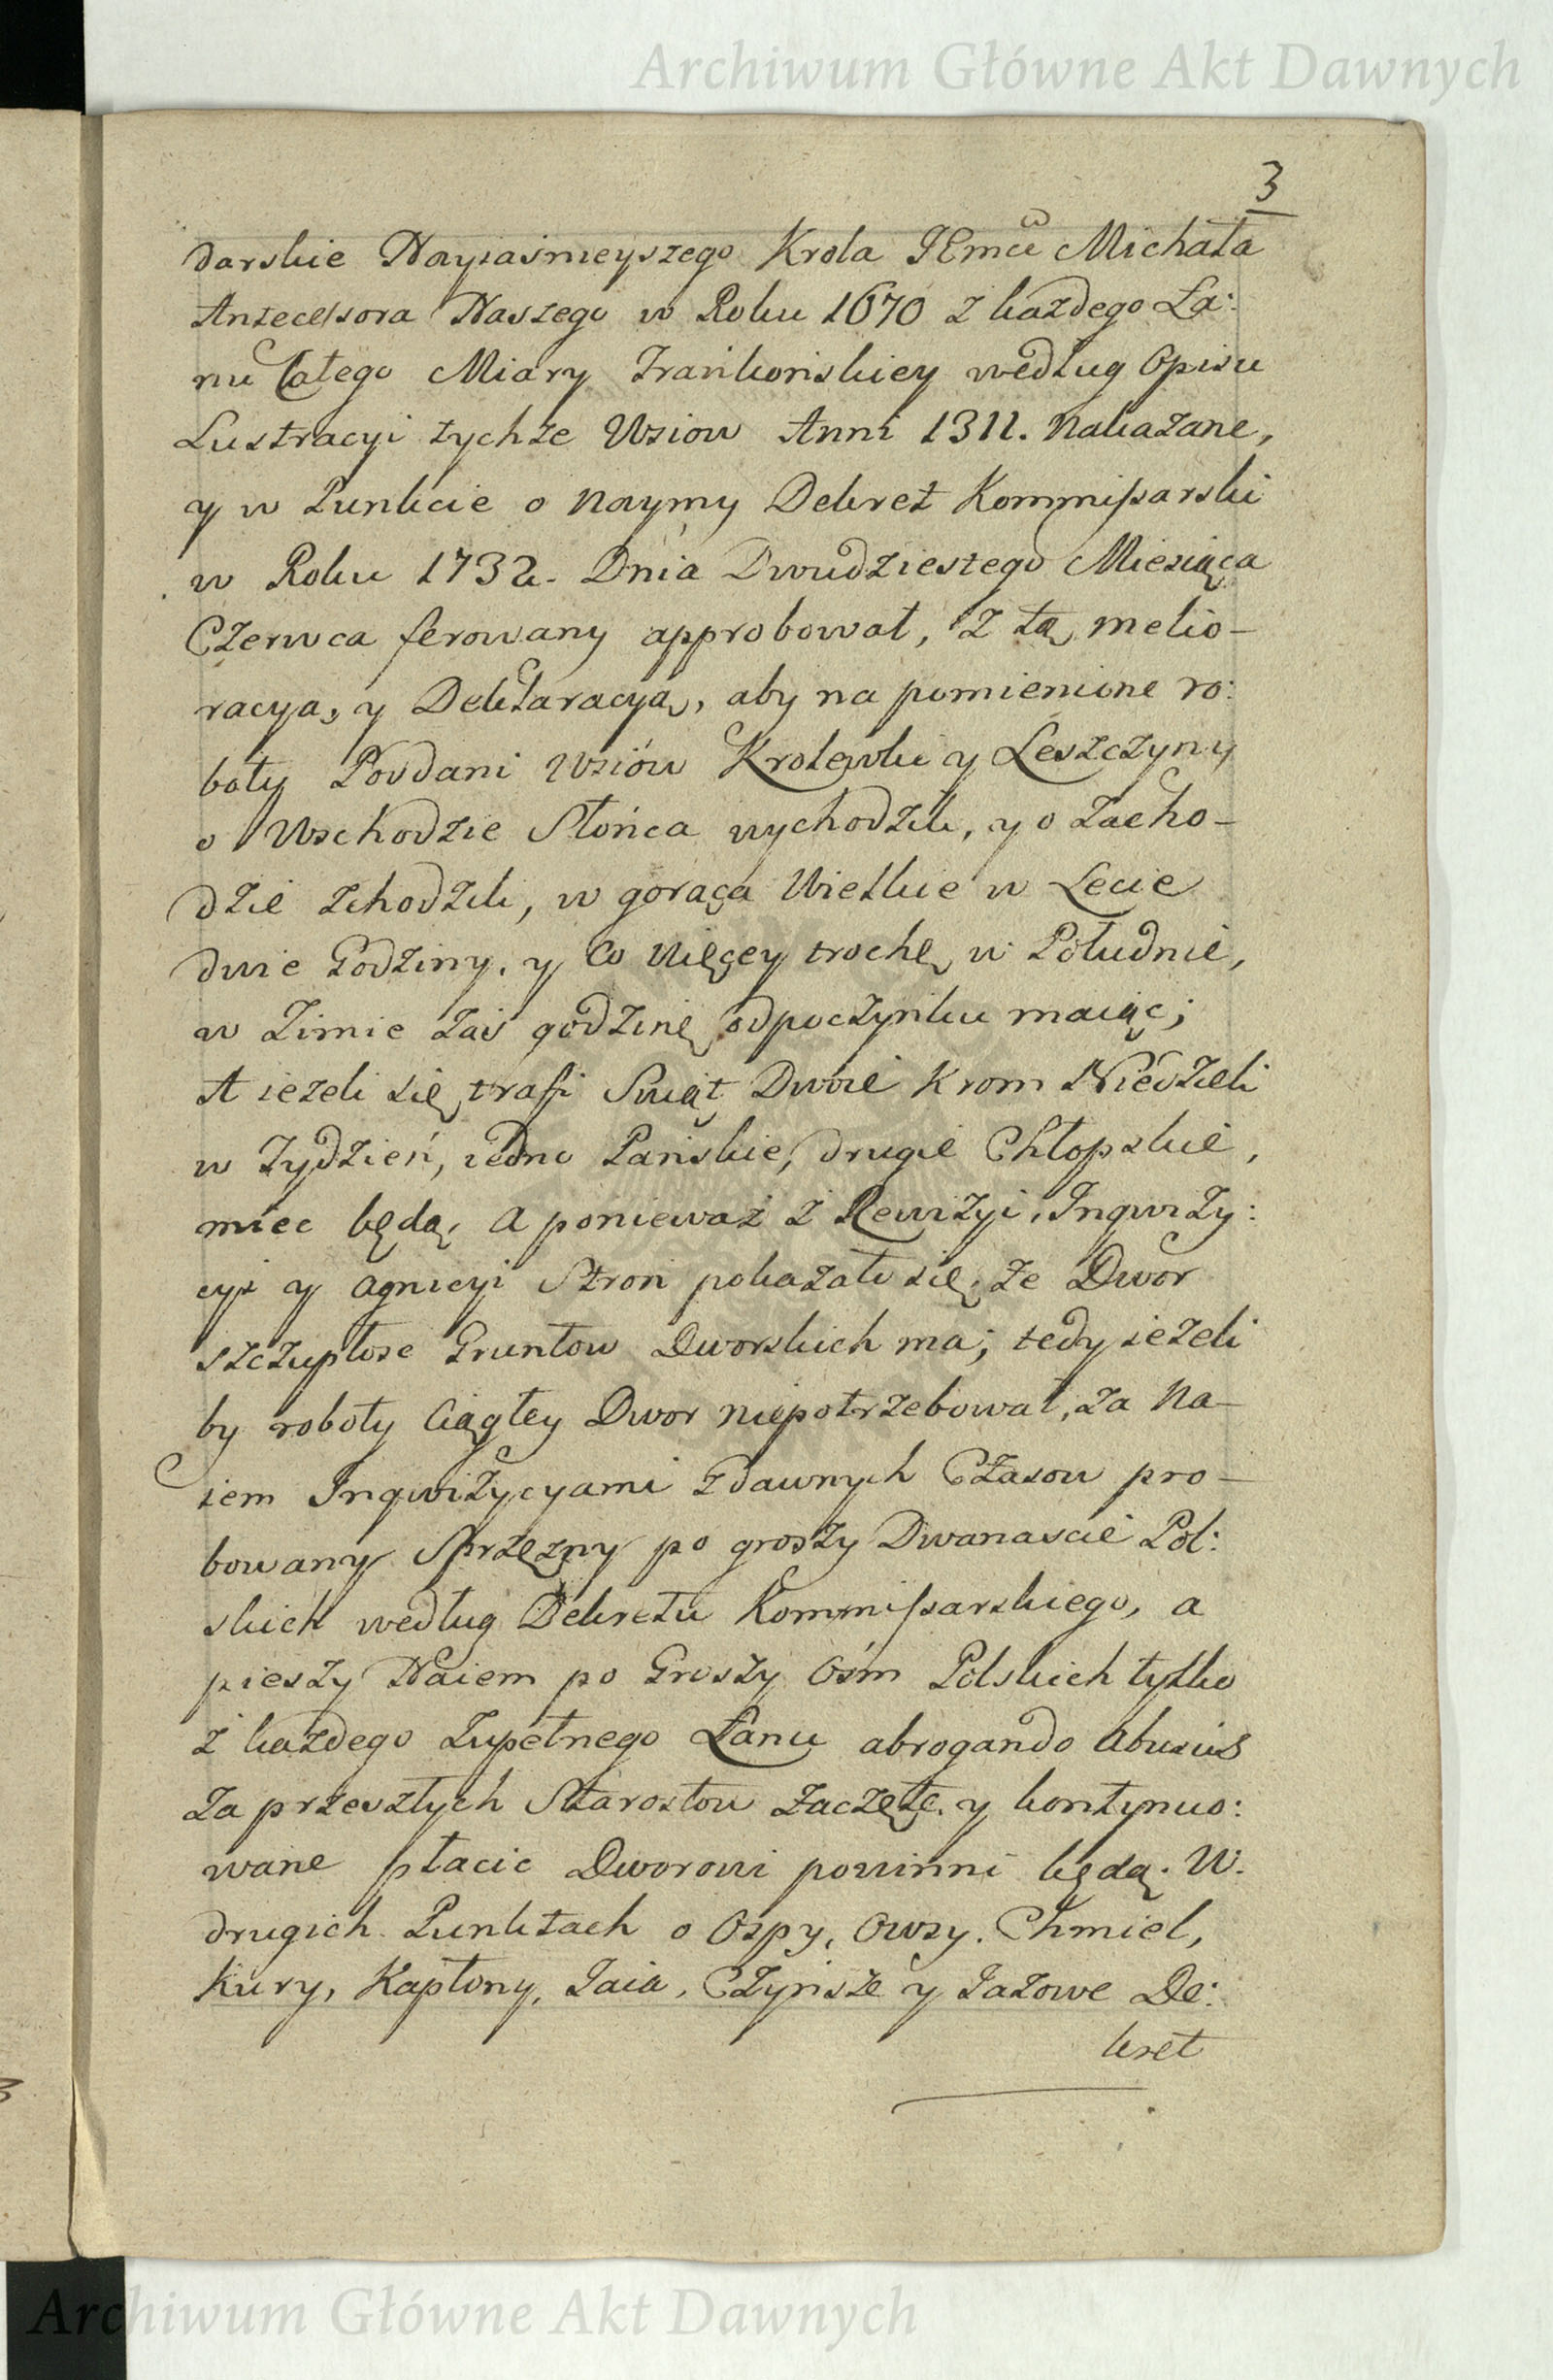 Archiwum Główne Akt Dawnych
3
darskie Nayiaśnieyszego Krola JEmci Michała
Antecessora Naszego w Roku 1670 z każdego Ła:
nu Całego Miary Frankońskiey według Opisu
Lustracyi tychże Wsiow Anni 1311. nakazane,
y w Punkcie o naymy Dekret Kommissarski
w Roku 1732. Dnia Dwudziestego Miesiąca
Czerwca ferowany approbował, z tą melio-
racyą, y Deklaracyą, aby na pomienione ro:
boty Poddani Wsiów Krolewki y Leszczyny
o Wschodzie Słońca wychodzili, y o Zacho-
dzie schodzili, w gorąca Wielkie w Lecie
dwie Godziny, y Co więcey trochę w Południe,
w Zimie zaś godzinę odpoczynku maiąc;
A ieżeli się trafi Swiąt Dwoie Krom Niedzieli
w Tydzień, iedno Pańskie, drugie Chłopskie,
miec będą, a ponieważ z Rewizyi, Inqwizy:
cyi y agnicyi Stron pokazało się, że Dwor
szczupłosc Gruntow Dworskich ma; tedy ieżeli
by roboty Ciągłey Dwor niepotrzebował, za Na-
iem Inqwizycyami z dawnych Czasow pro-
bowany Sprzężny po groszy Dwanascie Pol:
skich według Dekretu Kommissarskiego, a
pieszy Naiem po Groszy Ośm Polskich tylko
z każdego zupełnego Łanu abrogando abusus
za przeszłych Starostow zaczęte y kontynuo:
wane płacic Dworowi powinni będą. W
drugich Punktach o Ospy, Owsy, Chmiel,
Kury, Kapłony, Jaia, Czynsze y Jazowe De:
kret
Archiwum Główne Akt Dawnych